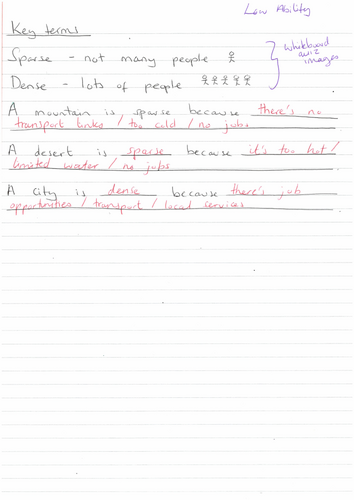 Low Ability
Key terms
Sparse - not many people
Dense - lots of people
whiteboard
quiz
images
A mountain is sparse because there's no
transport links / too cold / no jobs
A desert is sparse because it's too hot /
limited water / no jobs
A city is dense because there's job
opportunities / transport / local services